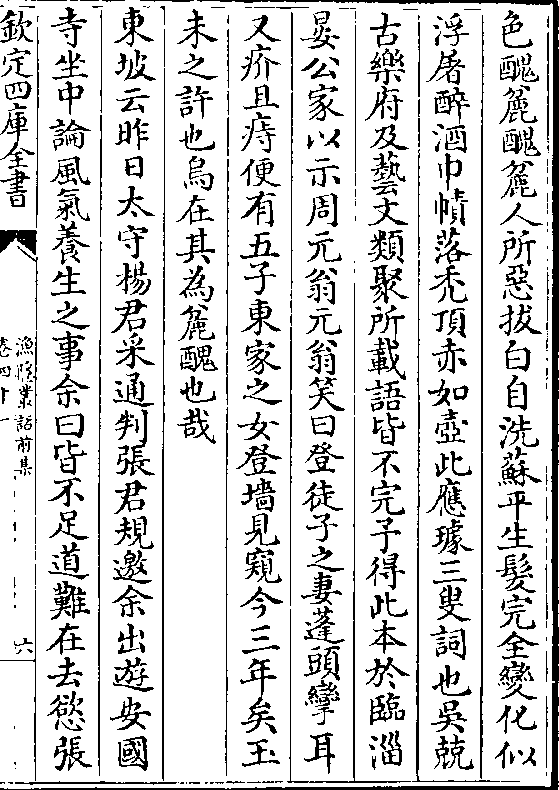 色醜麄醜麄人所惡拔白自洗蘇平生髮完全變化似
浮屠醉酒巾幘落秃頂赤如壺此應璩三叟詞也吳兢
古樂府及藝文類聚所載語皆不完予得此本於臨淄
晏公家以示周元翁元翁笑曰登徒子之妻蓬頭攣耳
又疥且痔便有五子東家之女登墻見窺今三年矣玉
未之許也烏在其為麄醜也哉
東坡云昨日太守楊君采通判張君規邀余出遊安國
寺坐中論風氣養生之事余曰皆不足道難在去慾張
欽定四庫全書
漁隱叢話前集
卷四十一
六